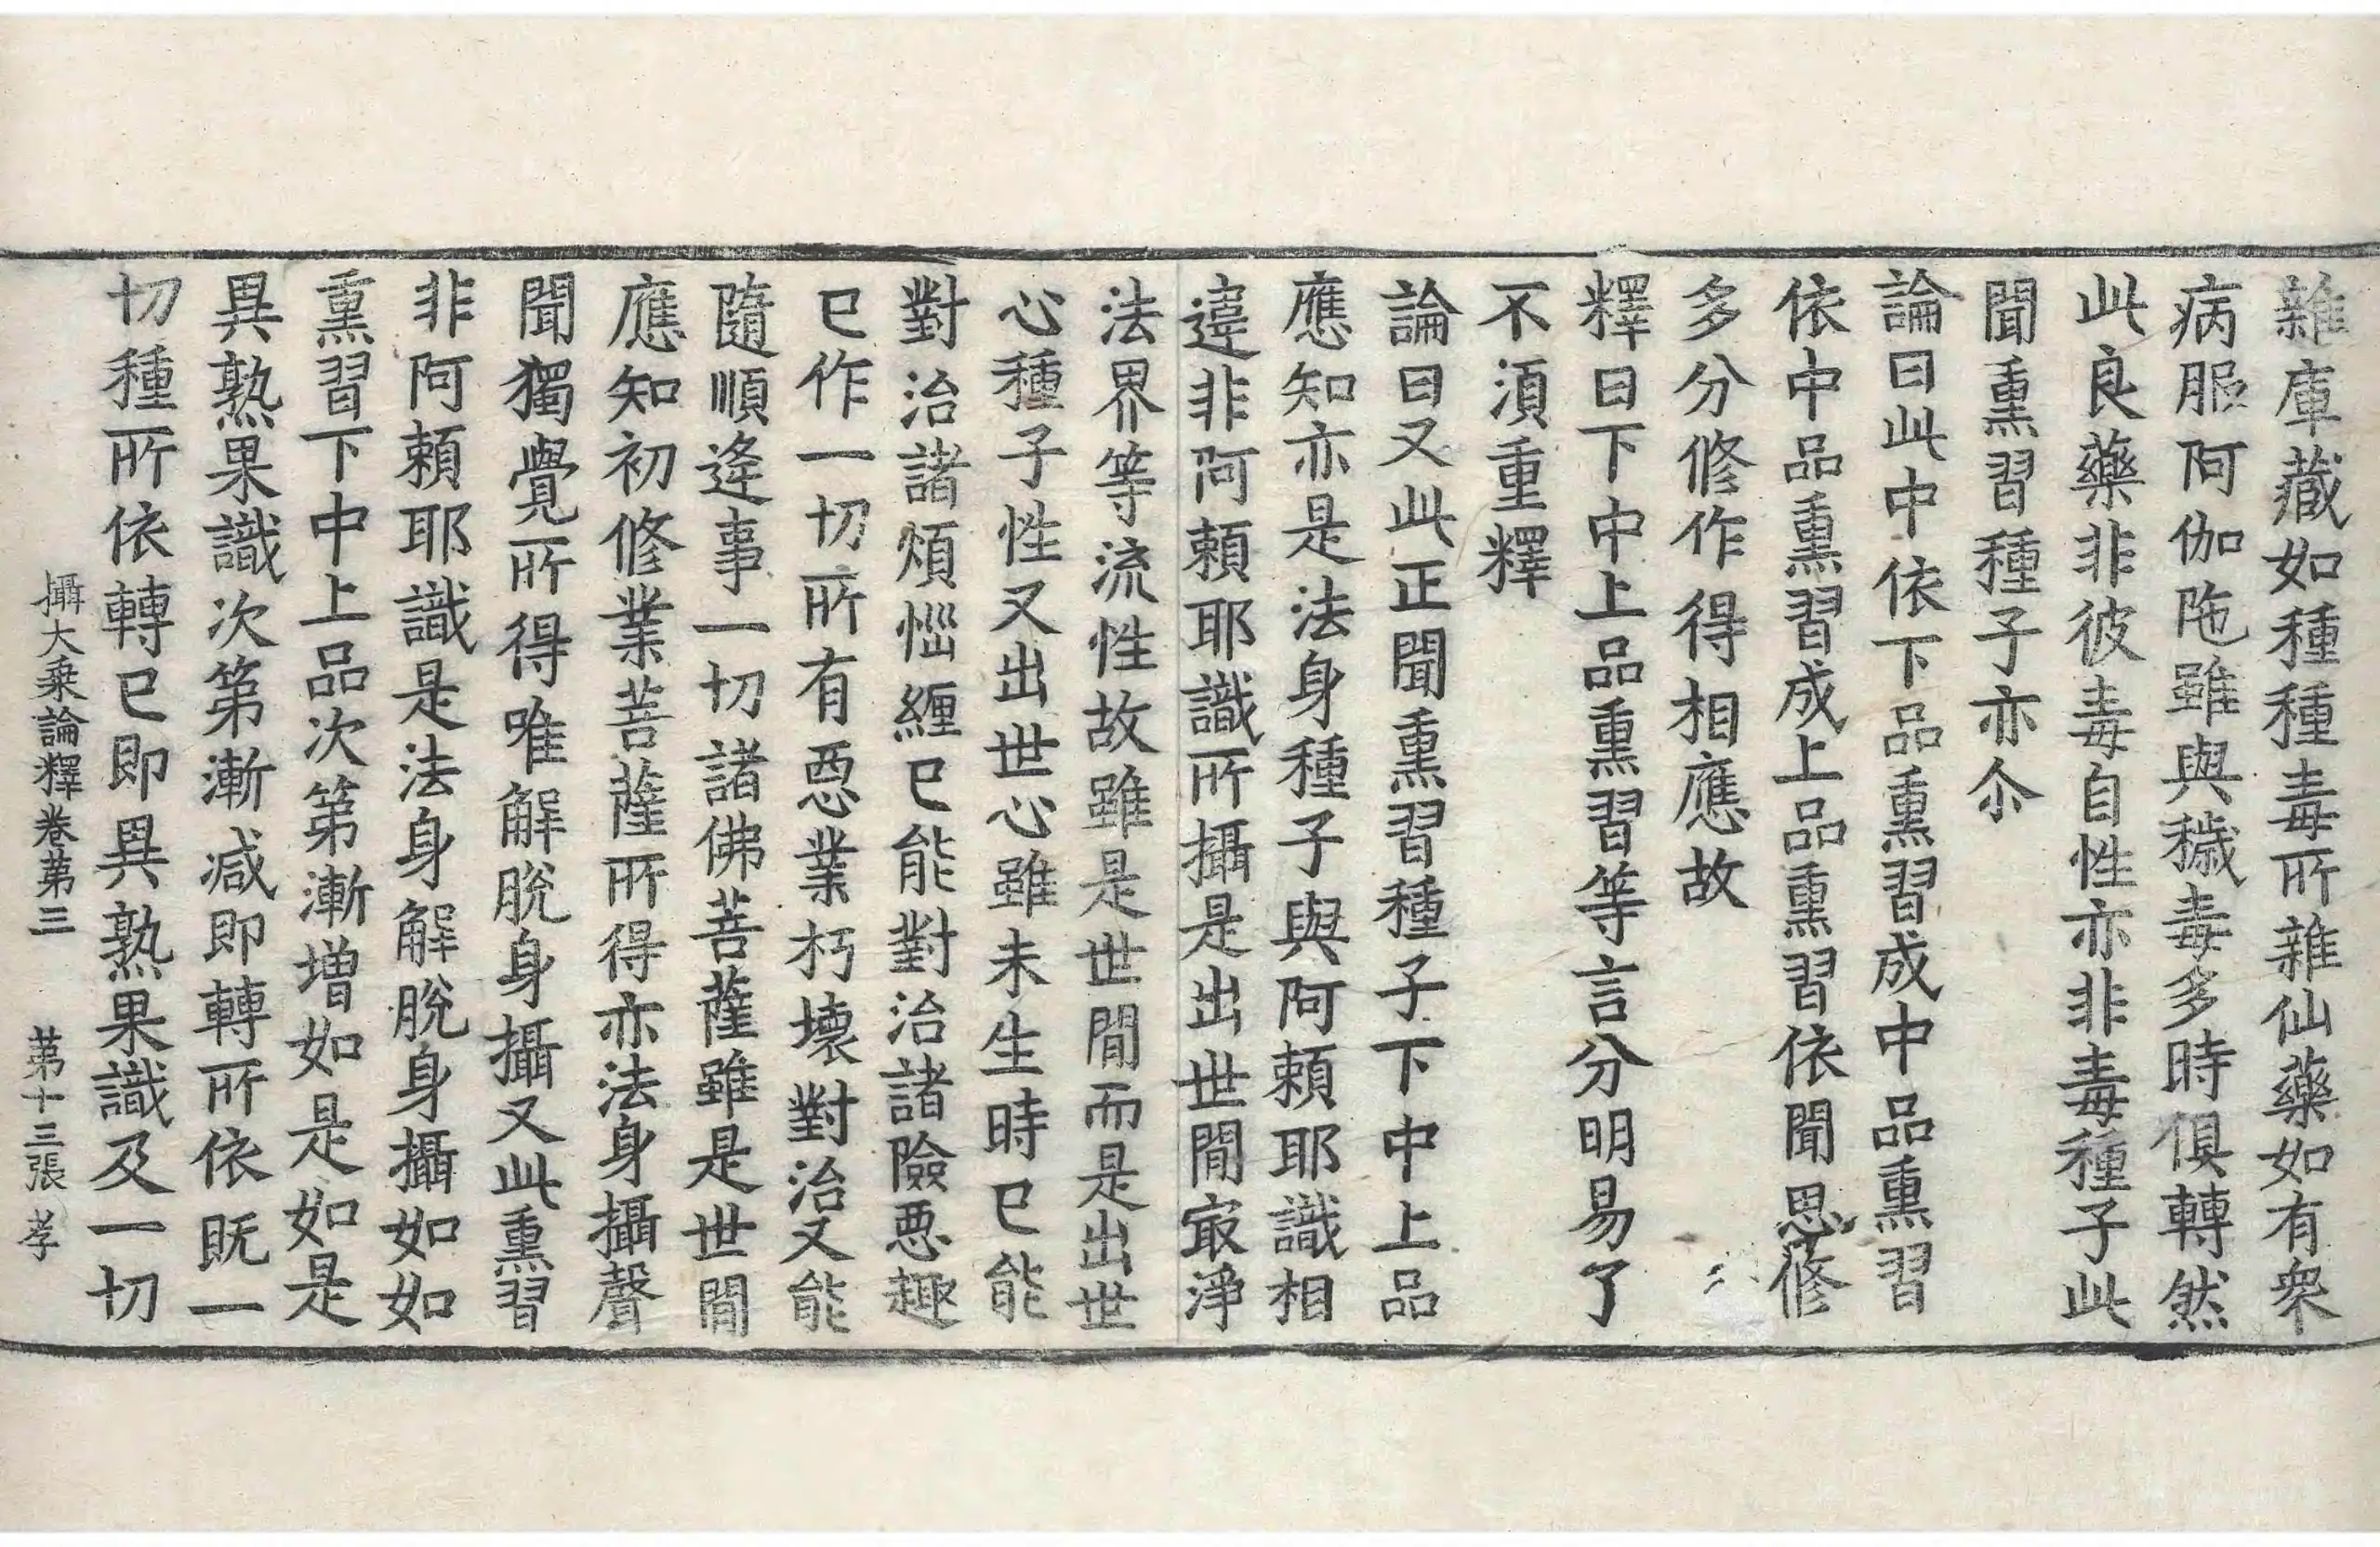 雜庫藏如種種毒所雜仙藥如有衆
病服阿伽陁雖與穢毒多時俱轉然
此良藥非彼毒自性亦非毒種子此
聞熏習種子亦尒
論曰此中依下品熏習成中品熏習
依中品熏習成上品熏習依聞思修
多分修作得相應故
釋曰下中上品熏習等言分明易了
不湏重釋
論曰又此正聞熏習種子下中上品
應知亦是法身種子與阿賴耶識相
違非阿賴耶識所攝是出世間㝡淨
法界等流性故雖是世間而是出世
心種子性又出世心雖未生時已能
對治諸煩惱纏已能對治諸險惡趣
已作一切所有惡業朽壞對治又能
隨順逢事一切諸佛菩薩雖是世間
應知初修業菩薩所得亦法身攝聲
聞獨覺所得唯解脫身攝又此熏習
非阿賴耶識是法身解脫身攝如如
熏習下中上品次第漸增如是如是
異熟果識次第漸減即轉所依既一
切種所依轉已即異熟果識及一切
攝大乘論釋卷第三 第十三張 孝